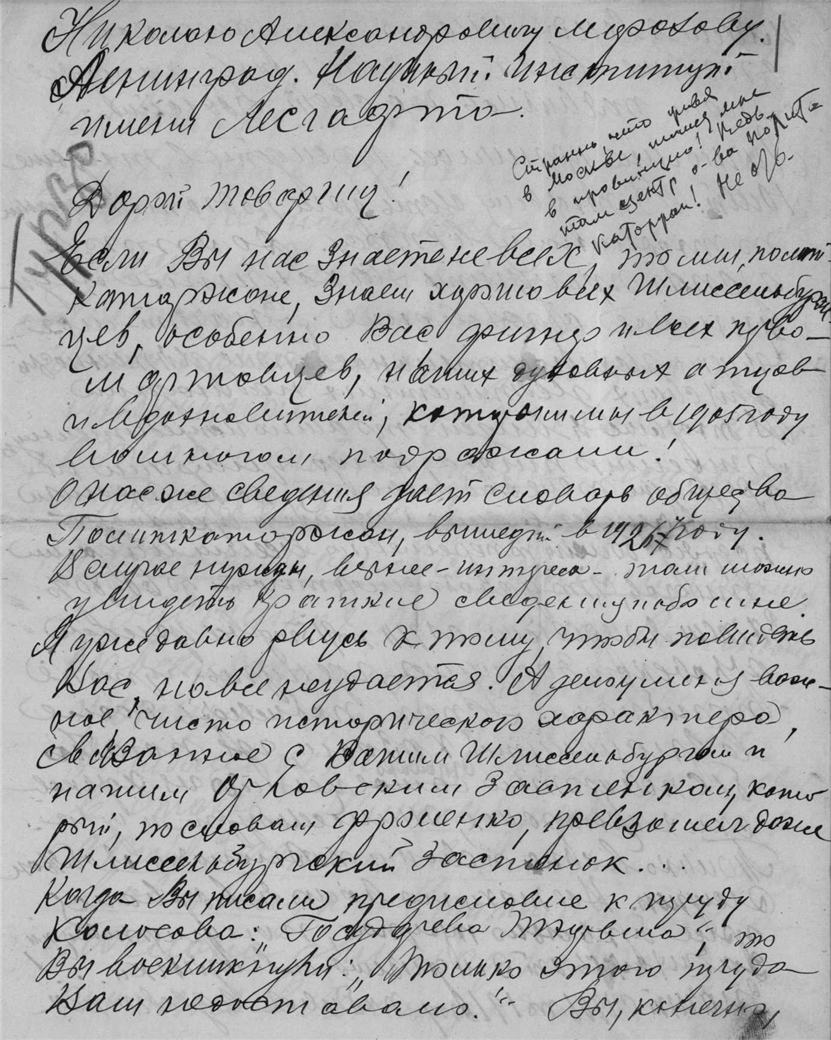 Николаю Александровичу Морозову.
Ленинград. Научный Институт
имени Лесгафта.
Странно, что живя
в Москве, пишу мне
в провинцию! Ведь
там центр о-ва полит-
каторжан!
Дорогой товарищ!
Если Вы нас знаете не всех, то мы, полит-
каторжане, знаем хорошо всех Шлиссельбурж-
цев, особенно Вас, Фигнер и всех перво-
мартовцев, наших духовных отцов
и вдохновителей, которым мы в 1905 году
во многом подражали!
О нас же сведения дает словарь общества
Политкаторжан, вышедший в году.
В случае нужды, вернее - интереса - там можно
увидеть краткие сведения и обо мне.
Я уже давно рвусь к тому, чтобы повидать
Вас, но все не удается. А дело у меня важ-
ное, чисто исторического характера,
связанное с Вашим Шлиссельбургом и
нашим Орловским застенком, кото-
рый, по словам Фроленко, превзошел даже
Шлиссельбургский застенок...
Когда Вы писали предисловие к труду
Колосова: "Государева тюрьма", то
Вы воскликнули: "Только этого труда
нам недоставало!" Вы, конечно,